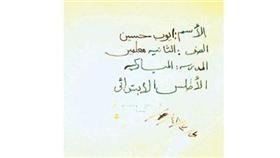 الأسم: ايوب حسين
الصف: الثانيه معلمين
المدرسه: المباركيه
الأطلس الابتدائى